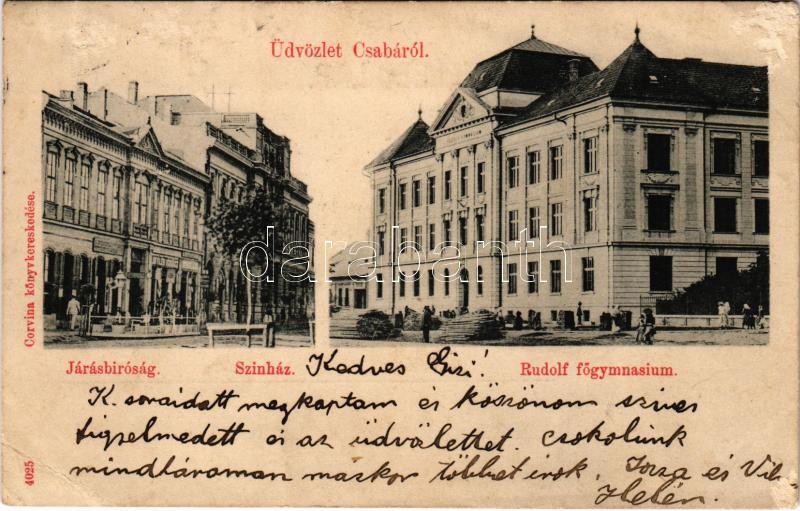 Üdvözlet Csabáról.
Corvina könyvkereskedése.
darabanth
Járásbiróság.
Szinház.
Rudolf főgymnasium.
Kedves Gizi!
K. soraidatt megkaptam és köszönom szives
figyelmedett és az üdvözlettet. Csokolunk
mindtáraman máskor többet irok.
és
Helén.
4025